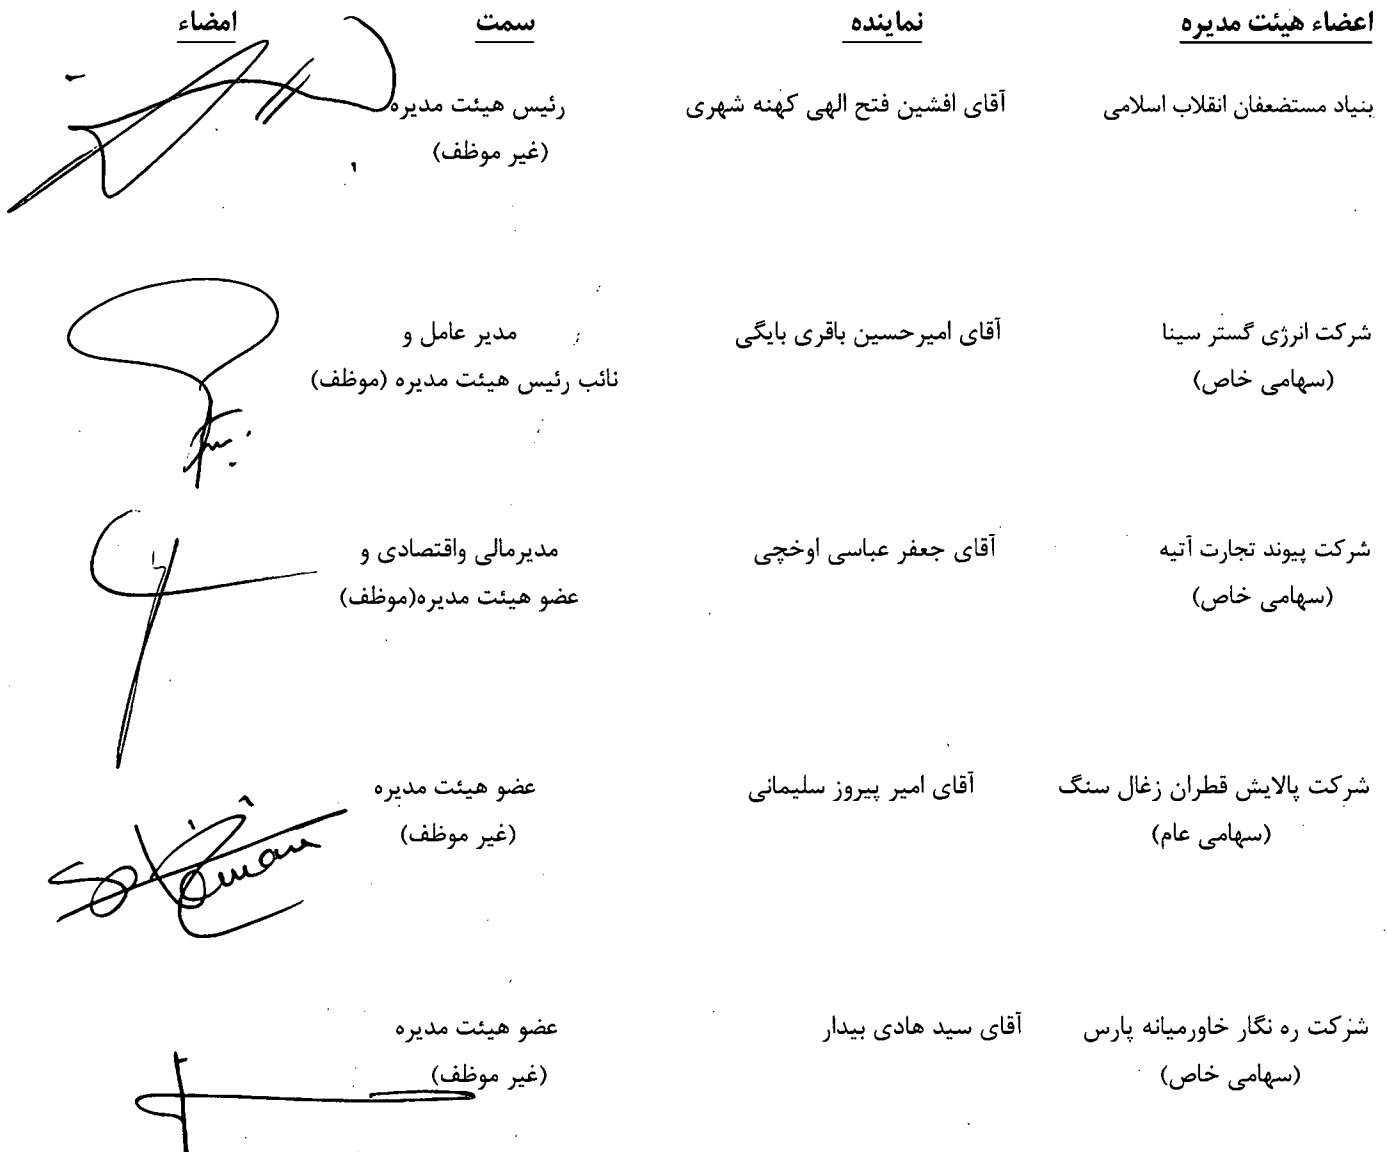 اعضاء هیئت مدیره نماینده سمت امضاء
بنیاد مستضعفان انقلاب اسلامی آقای افشین فتح الهی کهنه شهری رئیس هیئت مدیره
(غیر موظف)
شرکت انرژی گستر سینا آقای امیرحسین باقری بایگی مدیر عامل و
(سهامی خاص) نائب رئیس هیئت مدیره (موظف)
شرکت پیوند تجارت آتیه آقای جعفر عباسی اوخچی مدیرمالی واقتصادی و
(سهامی خاص) عضو هیئت مدیره(موظف)
شرکت پالایش قطران زغال سنگ آقای امیر پیروز سلیمانی عضو هیئت مدیره
(سهامی عام) (غیر موظف)
شرکت ره نگار خاورمیانه پارس آقای سید هادی بیدار عضو هیئت مدیره
(سهامی خاص) (غیر موظف)